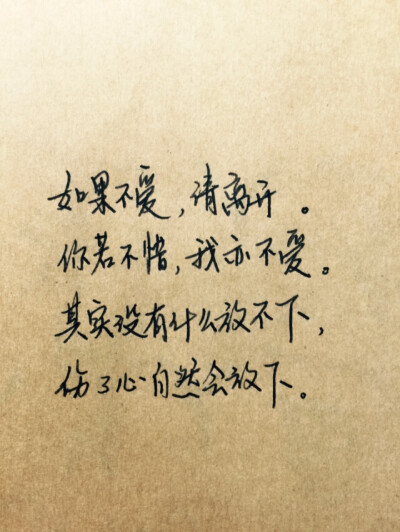 如果不爱，请离开。
你若不惜，我亦不爱。
其实没有什么放不下，
伤了心自然会放下。